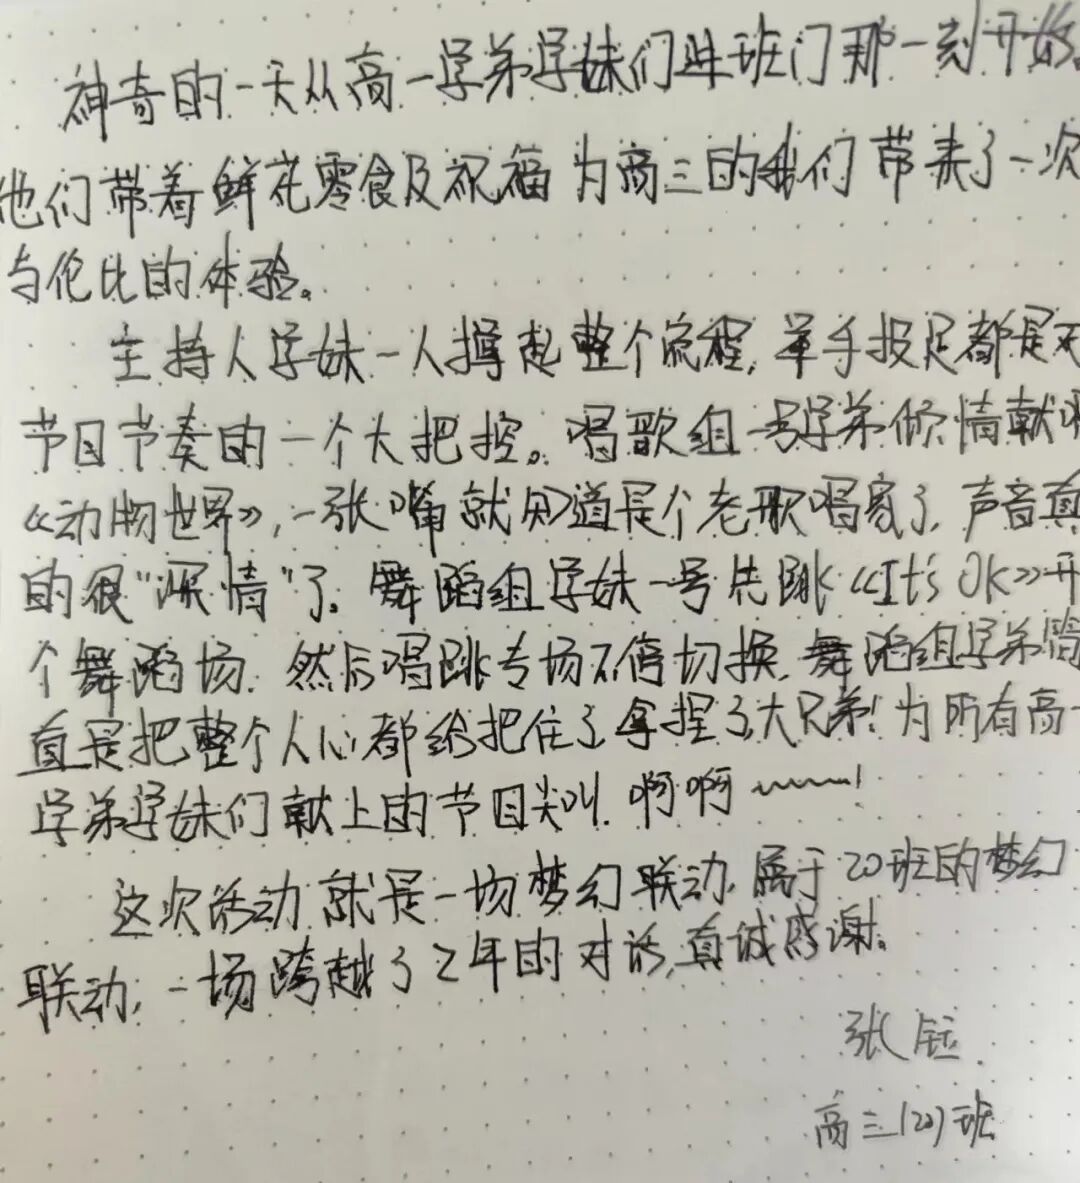 神奇的一天从高一学弟学妹们进班门那一刻开始,
他们带着鲜花零食及祝福为高三的我们带来了一次
与伦比的体验。
主持人学妹一人撑起整个流程,举手投足都是对
节目节奏的一个大把控。唱歌组一号学弟倾情献唱
《动物世界》,一张嘴就知道是个老歌唱家了,声音真
的很“深情”了。舞蹈组学妹一号先跳《It's OK》开
个舞蹈场.然后唱跳专场不停切换.舞蹈组学弟简
直是把整个人心都给把住了拿捏了大兄弟!为所有高一
学弟学妹们献上的节目尖叫.啊啊~~~!
这次活动就是一场梦幻联动,属于20班的梦幻
联动,一场跨越了2年的对话,真诚感谢。
张
高三(20)班